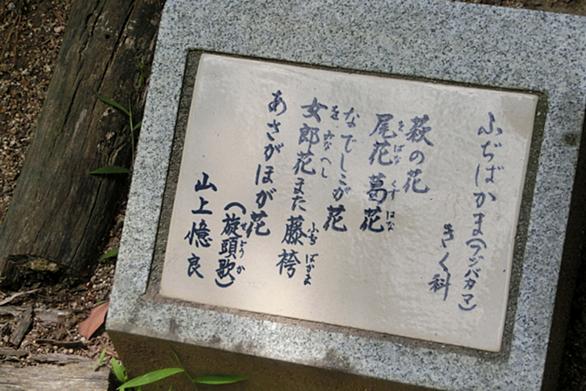 ふぢばかま(フジバカマ)
きく科
萩の花
尾花 葛花
なでしこが花
を
女郎花また藤袴
あさがほが花
(旋頭歌)
山上憶良
をばな
くずはな
みなへし
ふぢばかま
せどうか